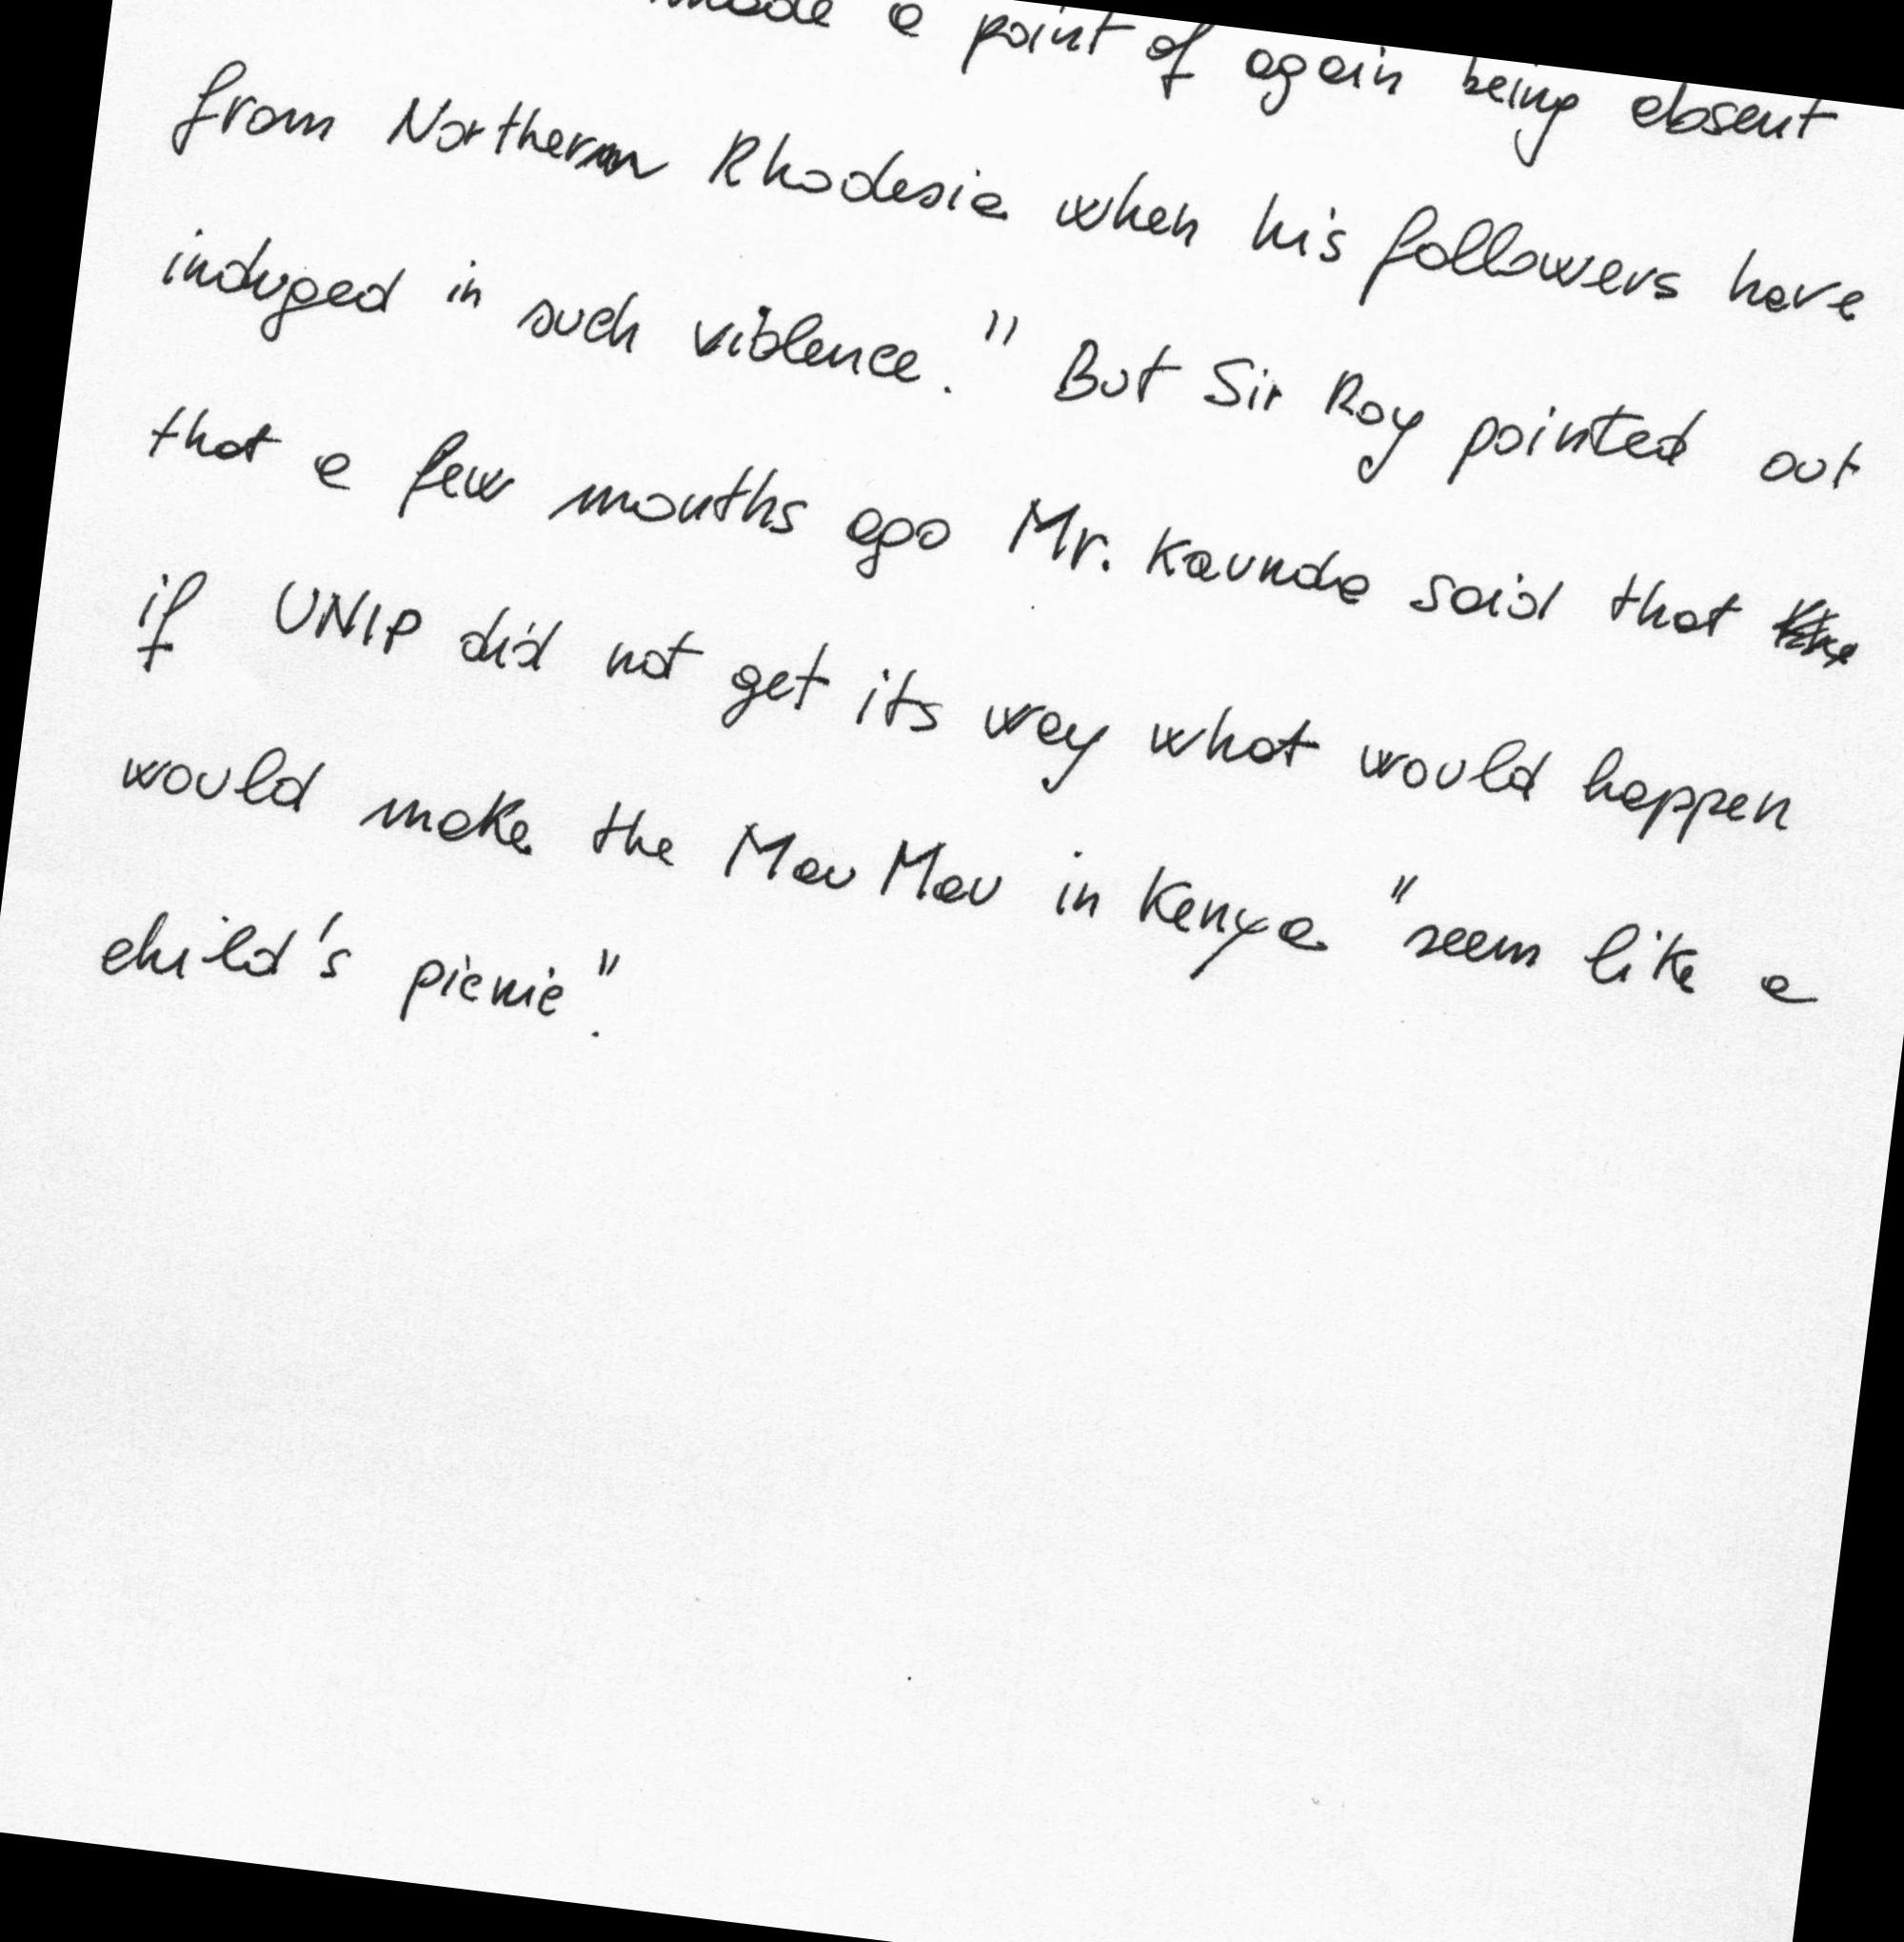 made a point of again being absent
from Northern Rhodesia when his followers have
induged in such violence." But Sir Roy pointed out
that a few months ago Mr. Kaunda said that
if UNIP did not get its way what would happen
would make the Mau Mau in Kenya "seem like a
child's picnic".